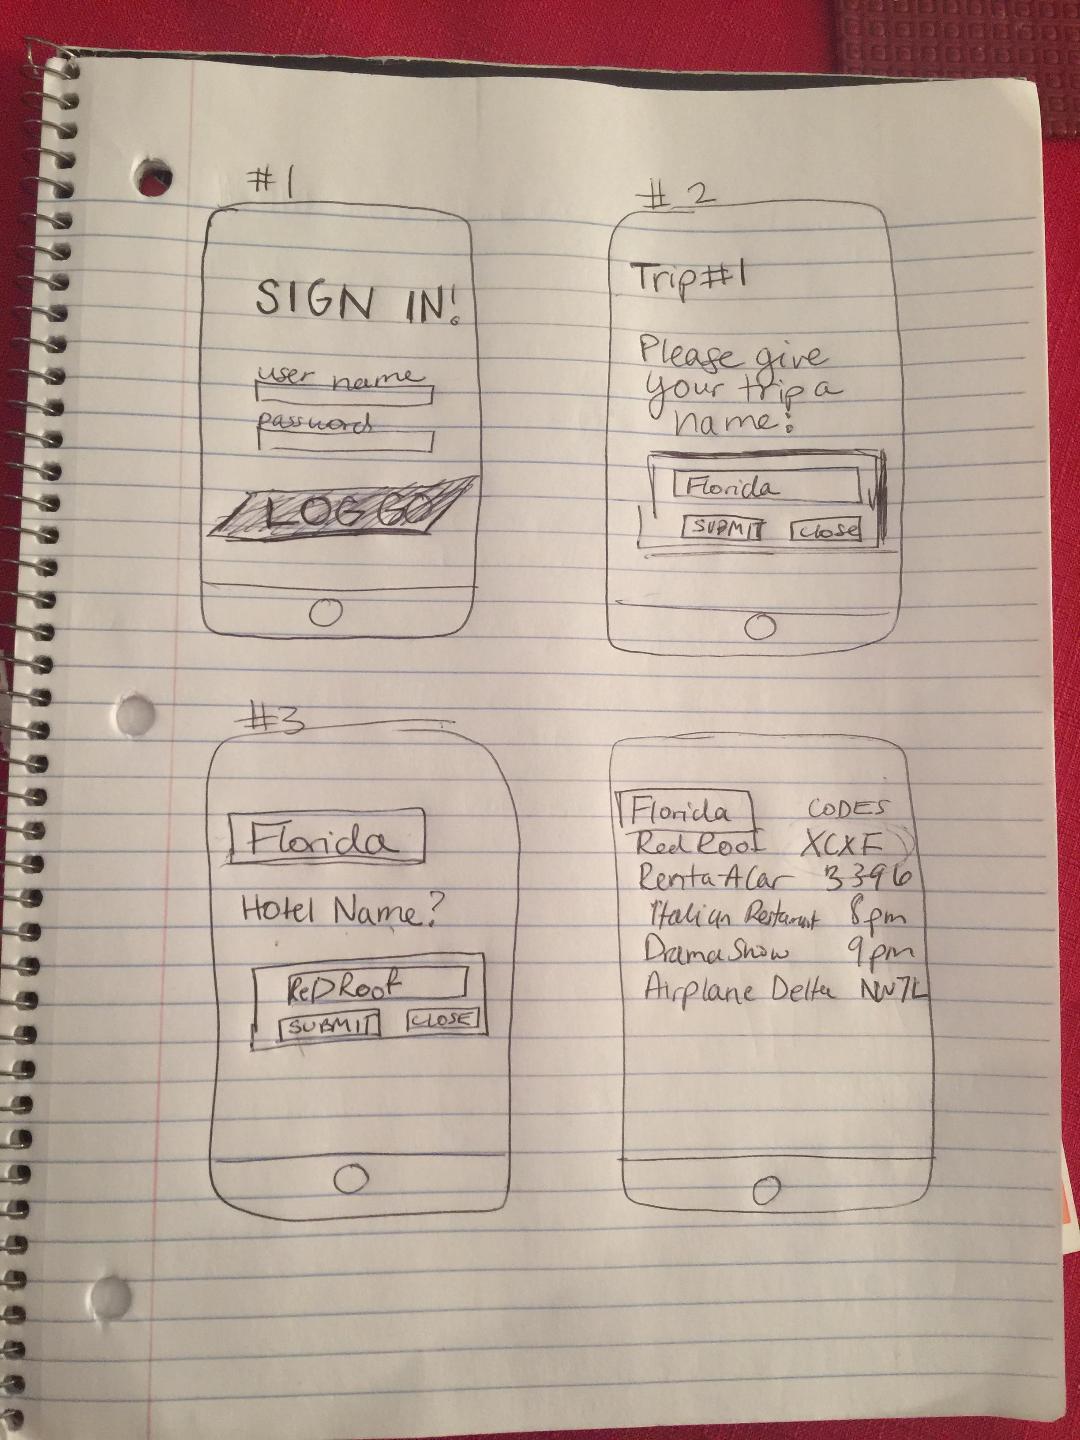 #1
SIGN IN!
user name
password
LOG GO
#2
Trip#1
Please give
your trip a
name:
Florida
SUBMIT CLOSE
#3
Florida
Hotel Name?
ReD Roof
SUBMIT CLOSE
Florida CODES
Red Roof XCXF
Renta A Car 3396
Italian Restaurant 8pm
Drama Show 9pm
Airplane Delta NW7L